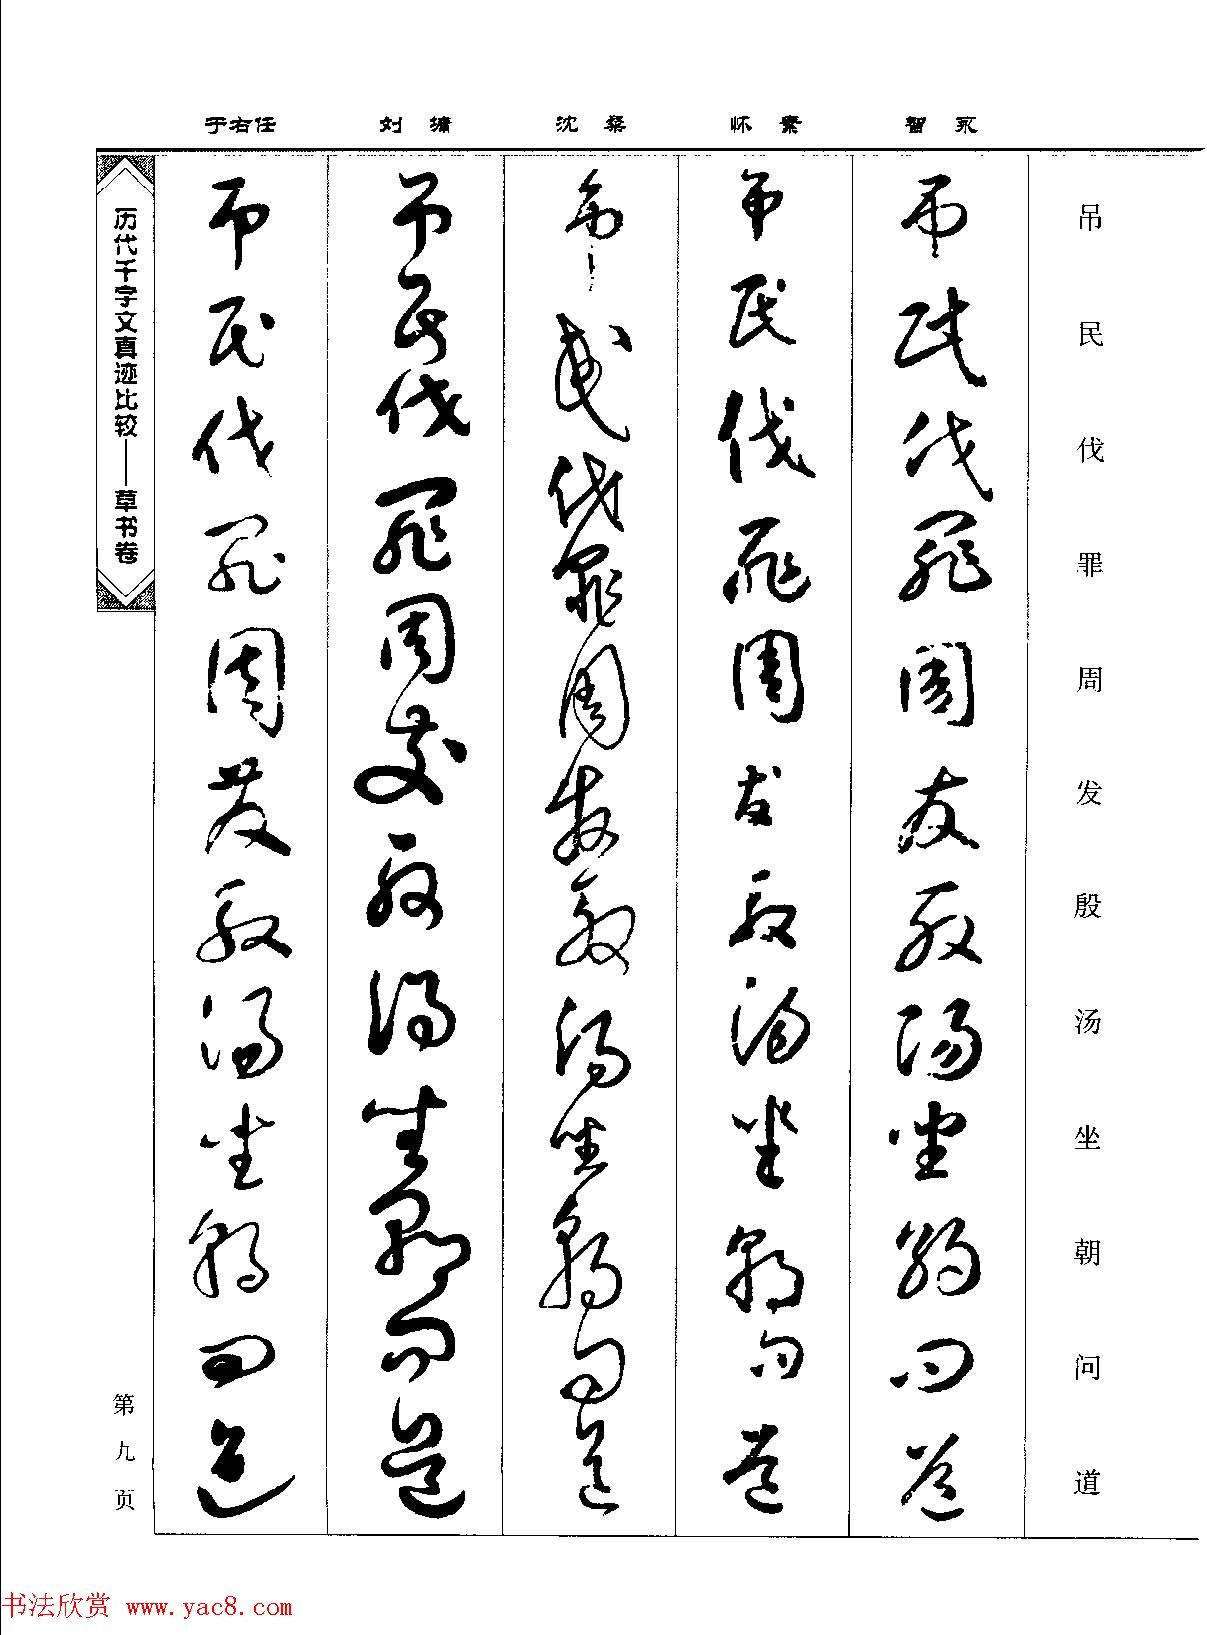 于右任 刘墉 沈粲 怀素 智永
吊民伐罪周发殷汤坐朝问道
吊民伐罪周发殷汤坐朝问道
吊民伐罪周发殷汤坐朝问道
吊民伐罪周发殷汤坐朝问道
吊民伐罪周发殷汤坐朝问道
吊民伐罪周发殷汤坐朝问道
历代千字文真迹比较——草书卷
第九页
书法欣赏 www.yac8.com